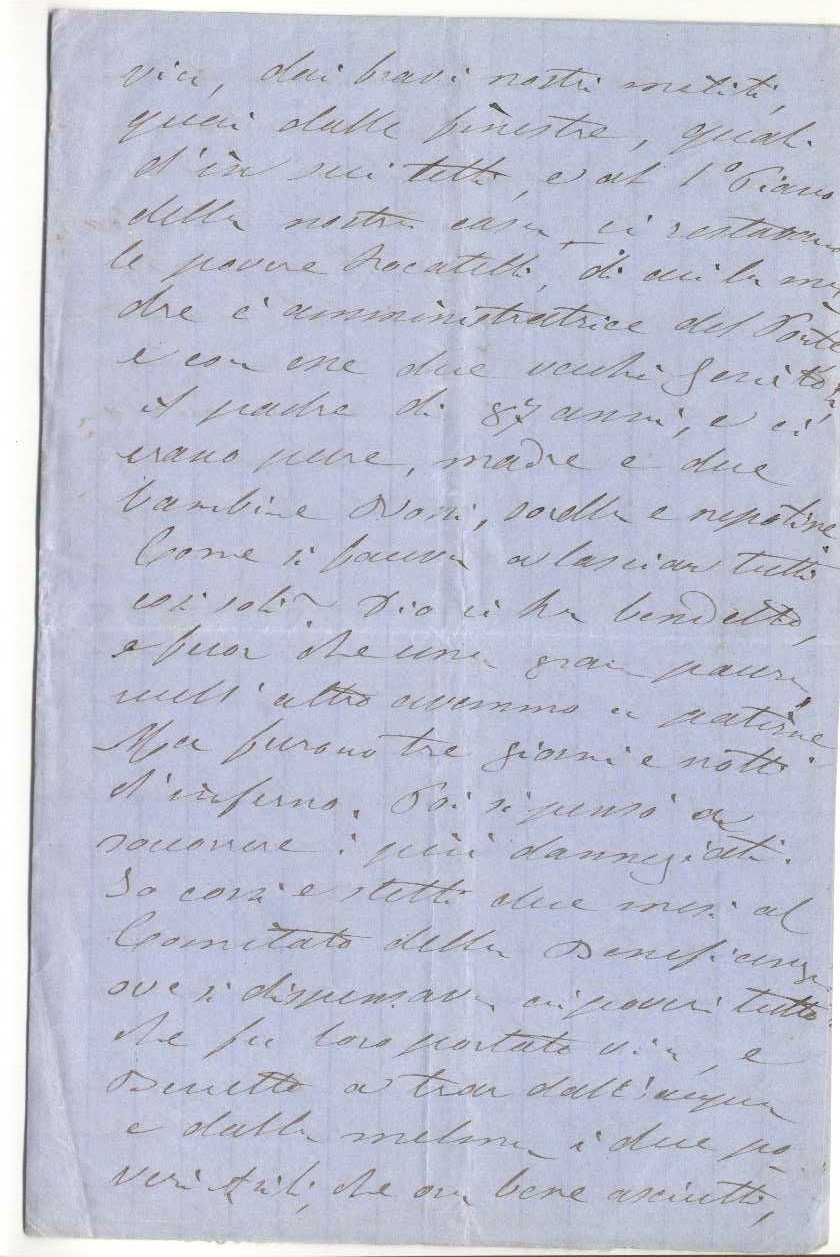 via, dai bravi nostri militi,
quai dalle finestre, quali
d'in sui tetti, e al 1° Piano
della nostra casa ci restavan
le povere Locatelli, di cui la ma
dre è amministratrice del Ponte
e con essa due vecchi genitori,
il padre di 87 anni, e ci
erano pure, madre e due
bambine sorella e nepotine
Come si faceva a lasciar tutti
così soli? Dio ci ha benedetto,
e fuor che una gran paura,
null'altro avemmo a patirne
Ma furono tre giorni e notti
d'inferno. Poi si pensò a
soccorrere i più danneggiati.
Io corsi e stetti due mesi al
Comitato della Beneficenza
ove si dispensava ai poveri tutto
che fu loro portato via, e
Benetto a trar dall'acqua
e dalla melma i due po
veri Asili, che or bene asciutti,